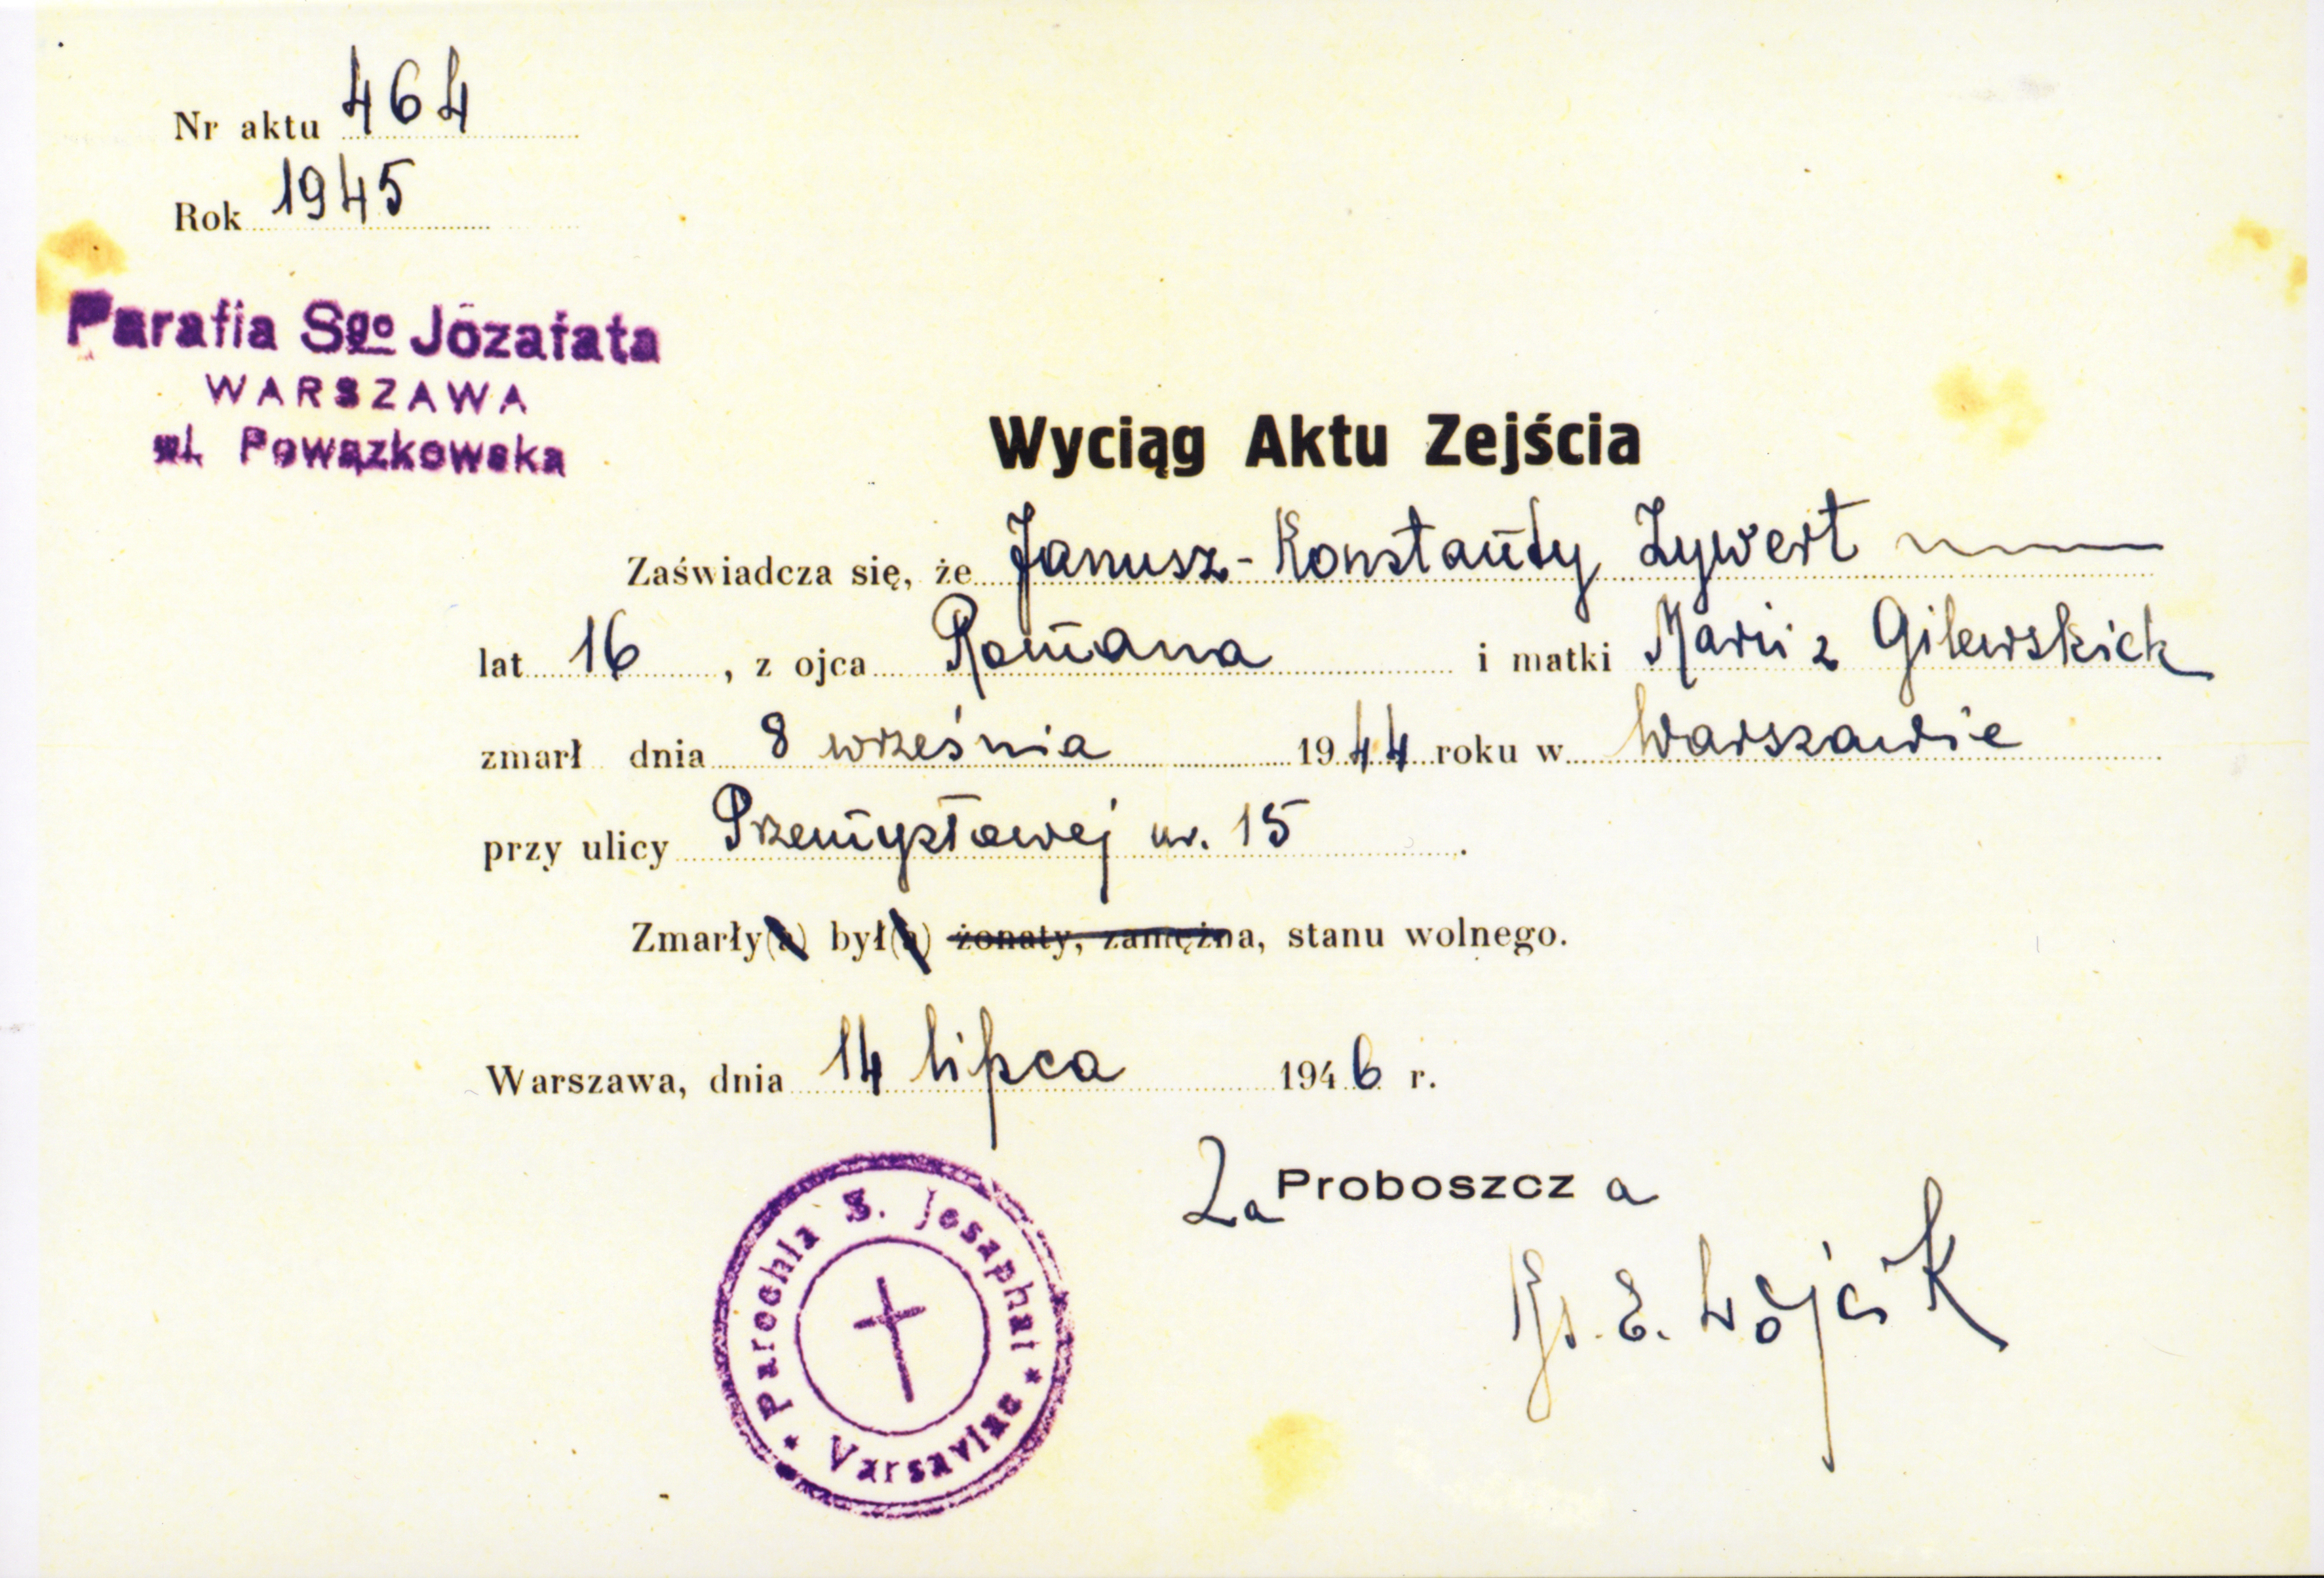 Nr aktu 464
Rok 1945
Parafia Sgo Józafata
WARSZAWA
ul. Powązkowska
Wyciąg Aktu Zejścia
Zaświadcza się, że Janusz-Konstanty Zywert
lat 16, z ojca Romana i matki Marii z Gilewskich
zmarł dnia 8 września 1944 roku w Warszawie
przy ulicy Przemysłowej nr. 15.
Zmarły(a) był(a) żonaty, zamężna, stanu wolnego.
Warszawa, dnia 14 lipca 1946 r.
Za Proboszcza
Ks. E. Wójcik
Parochia S. Josaphat
* Varsaviae *